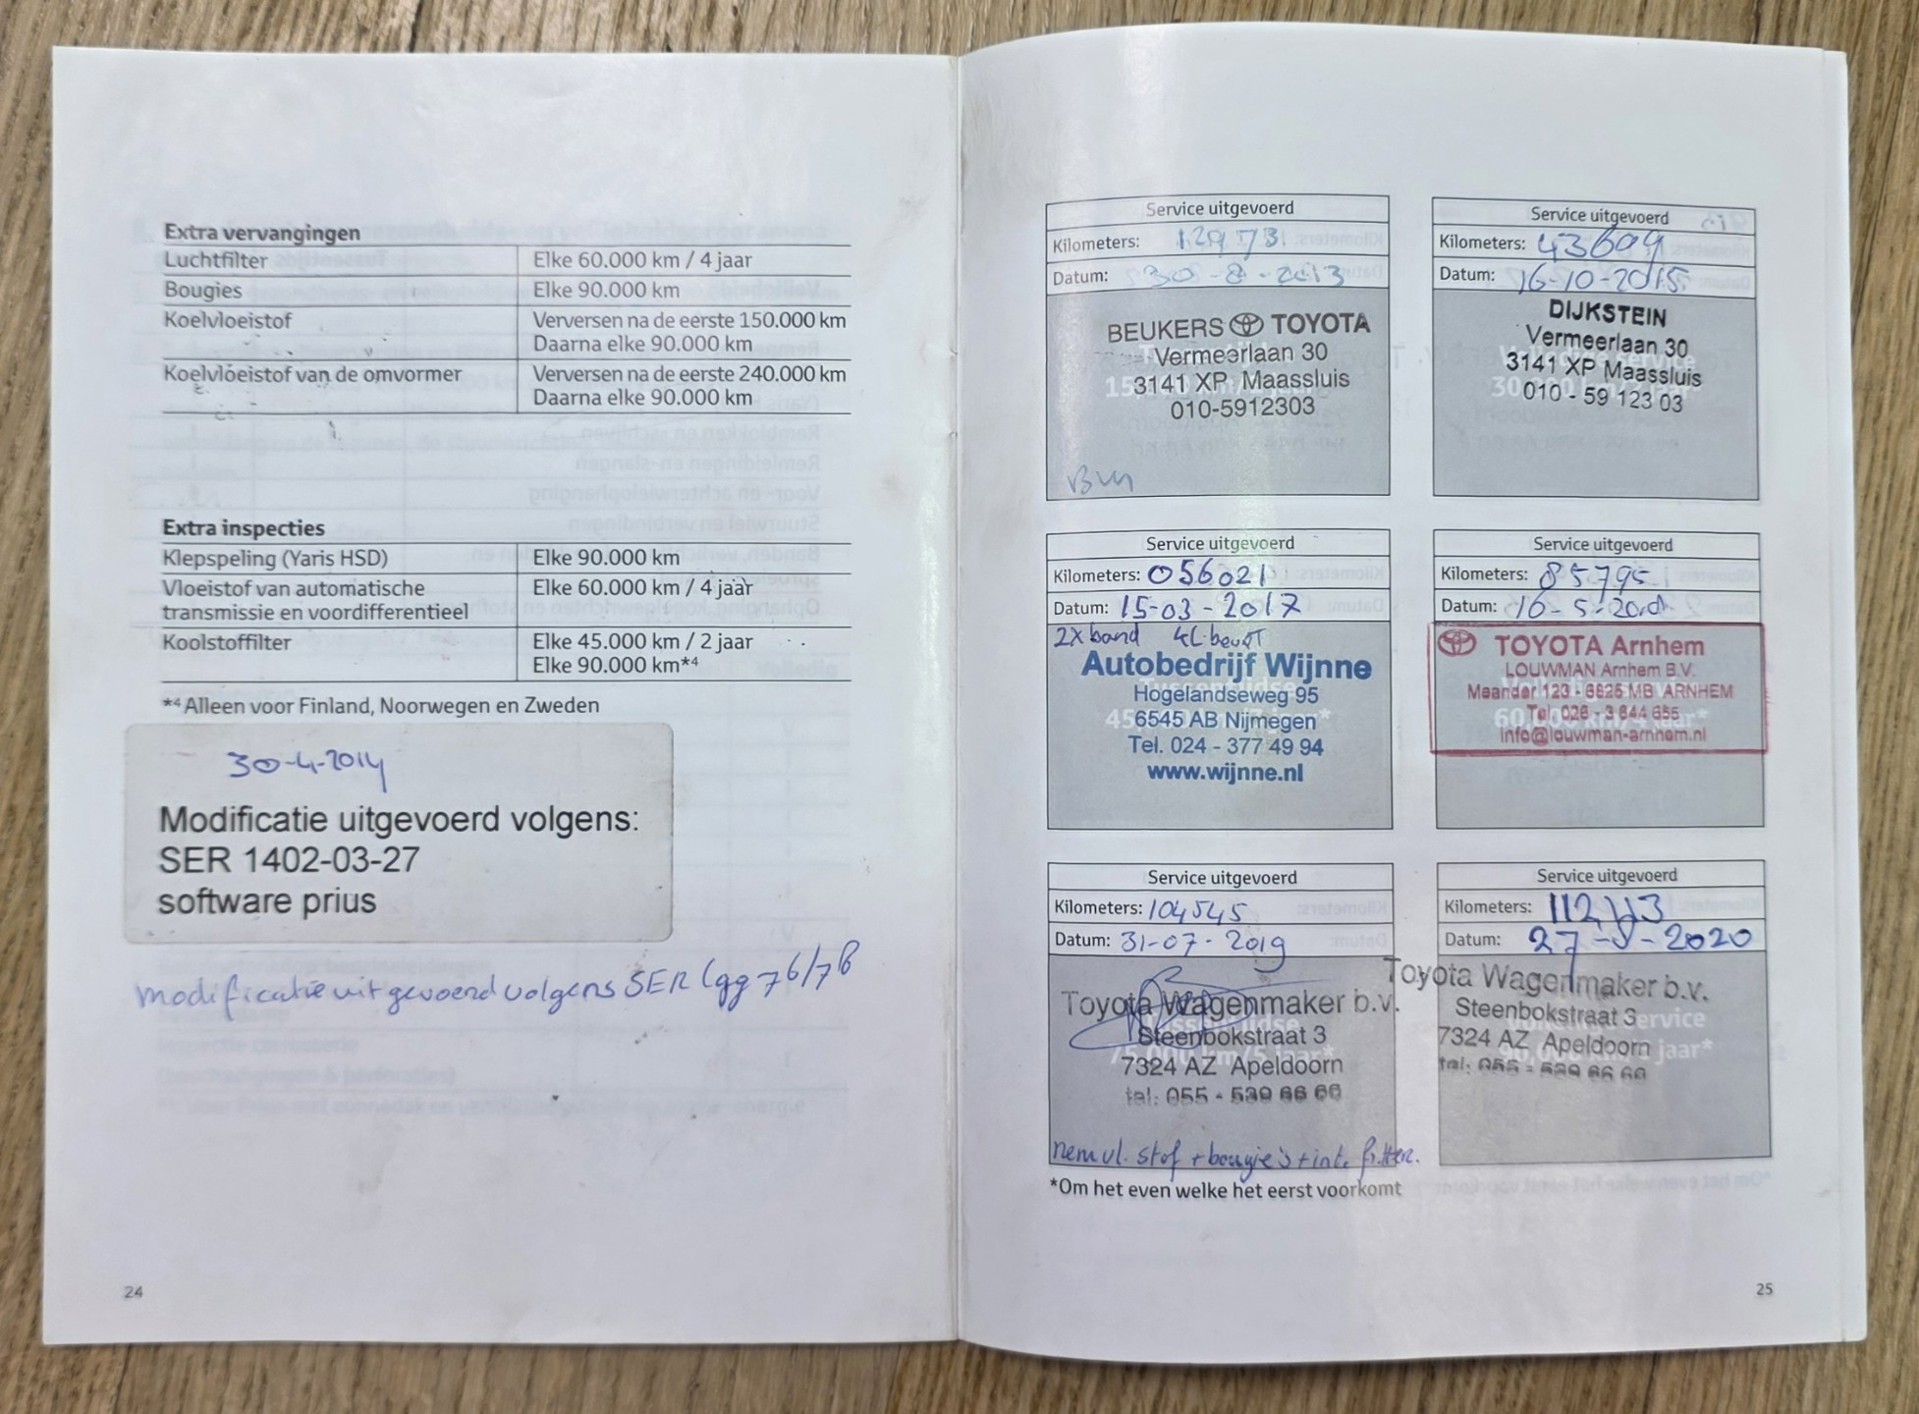 Extra vervangingen
Luchtfilter Elke 60.000 km / 4 jaar
Bougies Elke 90.000 km
Koelvloeistof Verversen na de eerste 150.000 km
Daarna elke 90.000 km
Koelvloeistof van de omvormer Verversen na de eerste 240.000 km
Daarna elke 90.000 km
Extra inspecties
Klepspeling (Yaris HSD) Elke 90.000 km
Vloeistof van automatische Elke 60.000 km / 4 jaar
transmissie en voordifferentieel
Koolstoffilter Elke 45.000 km / 2 jaar
Elke 90.000 km*4
*4 Alleen voor Finland, Noorwegen en Zweden
30-4-2014
Modificatie uitgevoerd volgens:
SER 1402-03-27
software prius
modificatie uitgevoerd volgens SER
24
Service uitgevoerd
Kilometers: 12973
Datum: 30-8-2013
BEUKERS TOYOTA
Vermeerlaan 30
3141 XP Maassluis
010-5912303
Service uitgevoerd
Kilometers: 43609
Datum: 16-10-2015
DIJKSTEIN
Vermeerlaan 30
3141 XP Maassluis
010 - 59 123 03
Volledige service
30.000 km/2 jaar*
Service uitgevoerd
Kilometers: 056021
Datum: 15-03-2017
2x band 4L
Autobedrijf Wijnne
Hogelandseweg 95
6545 AB Nijmegen
Tel. 024 - 377 49 94
www.wijnne.nl
Service uitgevoerd
Kilometers: 85795
Datum:
TOYOTA Arnhem
LOUWMAN Arnhem B.V.
Meander 123 - 6825 MB ARNHEM
Tel. 026 - 3 644 655
info@louwman-arnhem.nl
60.000 km/4 jaar*
Service uitgevoerd
Kilometers: 104545
Datum: 31-07-2019
Toyota Wagenmaker b.v.
Steenbokstraat 3
7324 AZ Apeldoorn
tel: 055 - 539 66 66
75.000 km/5 jaar*
rem vl. stof + bougie's + int. filter.
Service uitgevoerd
Kilometers:
Datum:
Toyota Wagenmaker b.v.
Steenbokstraat 3
7324 AZ Apeldoorn
tel: 055 - 539 66 66
90.000 km/6 jaar*
*Om het even welke het eerst voorkomt
25